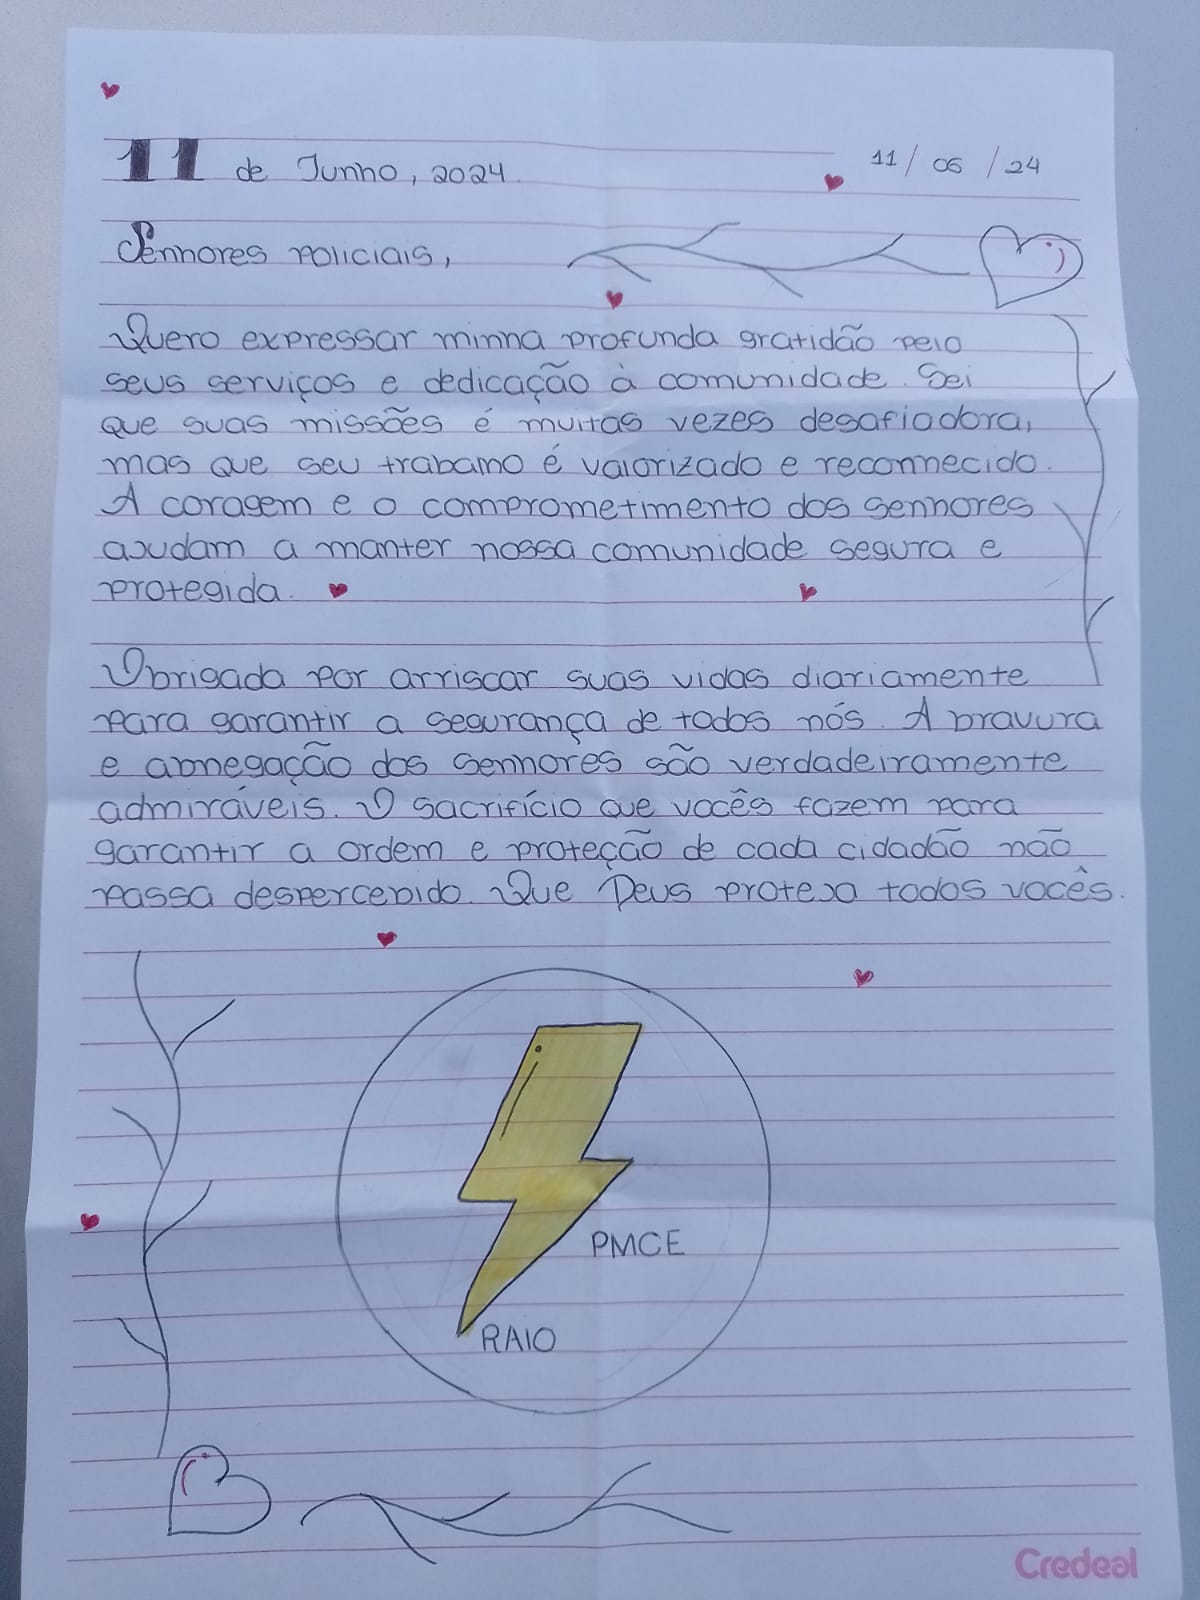 11 de Junho, 2024.
11/06/24
Senhores policiais,
Quero expressar minha profunda gratidão pelo
seus serviços e dedicação à comunidade. Sei
que suas missões é muitas vezes desafiadora,
mas que seu trabalho é valorizado e reconhecido.
A coragem e o comprometimento dos senhores
ajudam a manter nossa comunidade segura e
protegida.
Obrigada por arriscar suas vidas diariamente
para garantir a segurança de todos nós. A bravura
e abnegação dos senhores são verdadeiramente
admiráveis. O sacrifício que vocês fazem para
garantir a ordem e proteção de cada cidadão não
passa despercebido. Que Deus proteja todos vocês.
PMCE
RAIO
Credeal